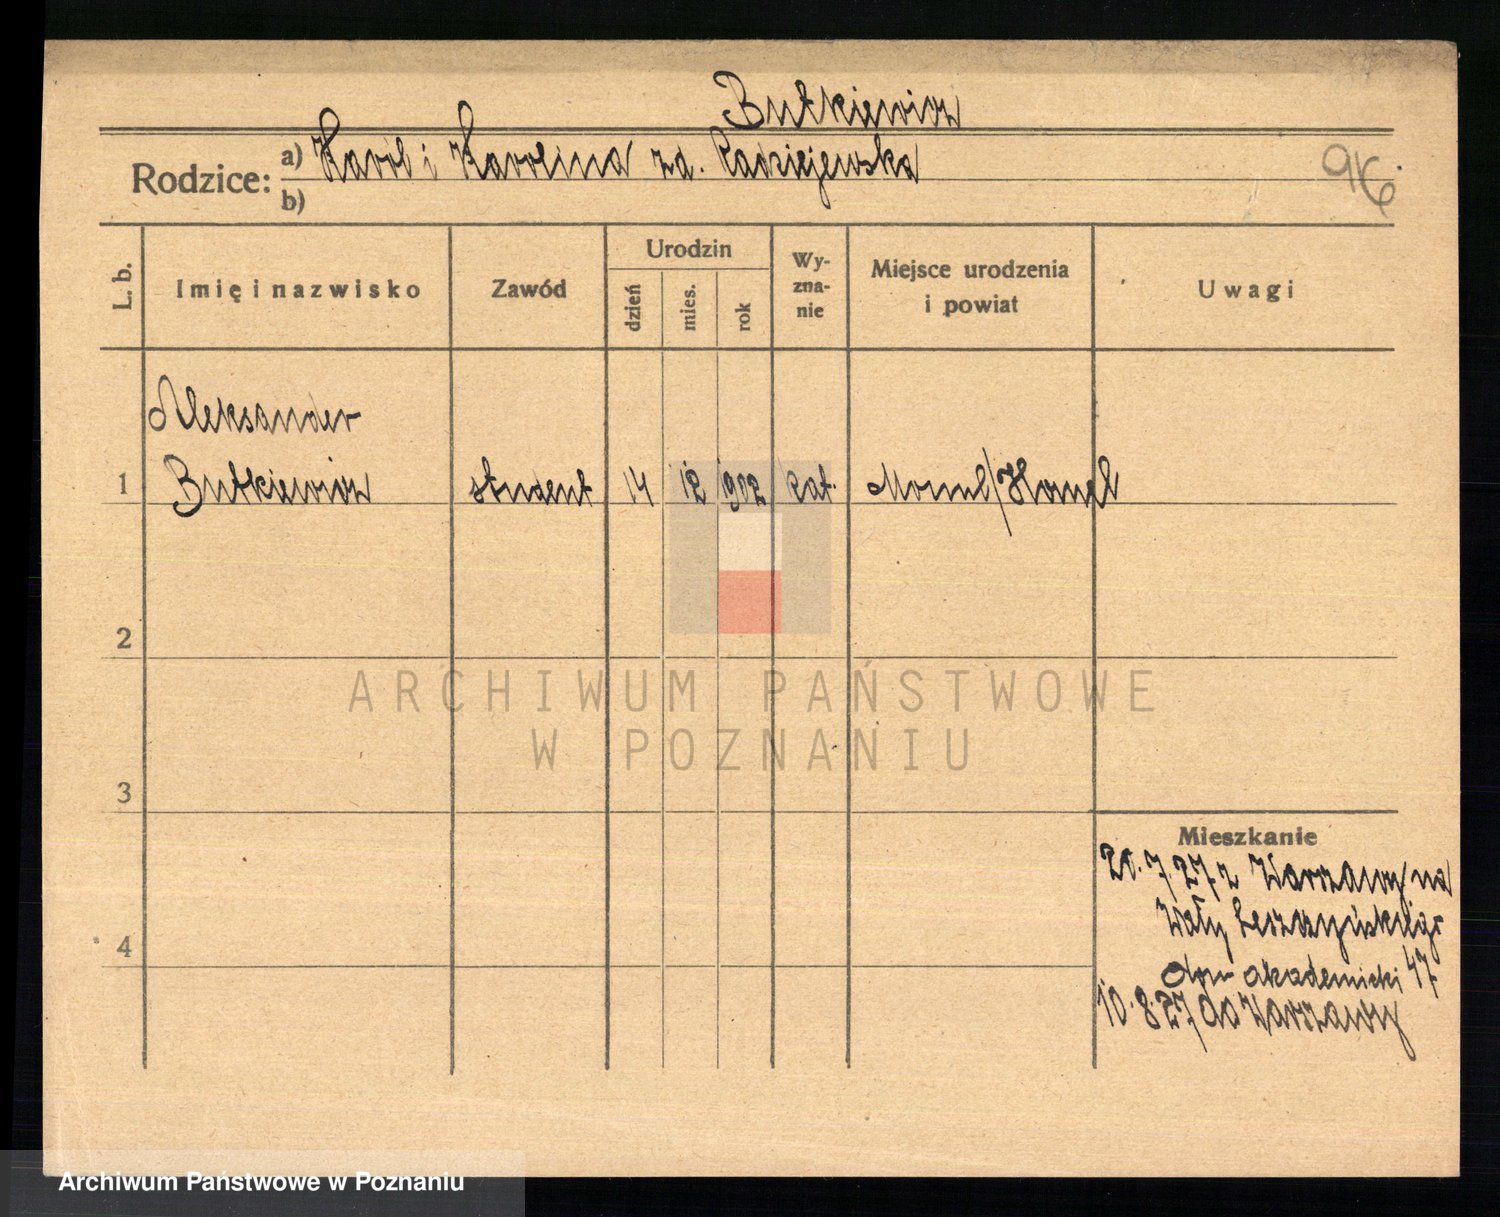 Butkiewicz
Rodzice: a) Karol i Karolina zd. Radziejewska
b)
96.
L. b. Imię i nazwisko Zawód Urodzin dzień mies. rok Wyznanie Miejsce urodzenia i powiat Uwagi
Aleksander
1 Butkiewicz student 14 12 1902 kat. /Homel
2
3
4
Mieszkanie
20.7.27 z Warszawy na
Wały Leszczyńskiego
dom akademicki 47
10.8.27 do Warszawy
ARCHIWUM PAŃSTWOWE
W POZNANIU
Archiwum Państwowe w Poznaniu